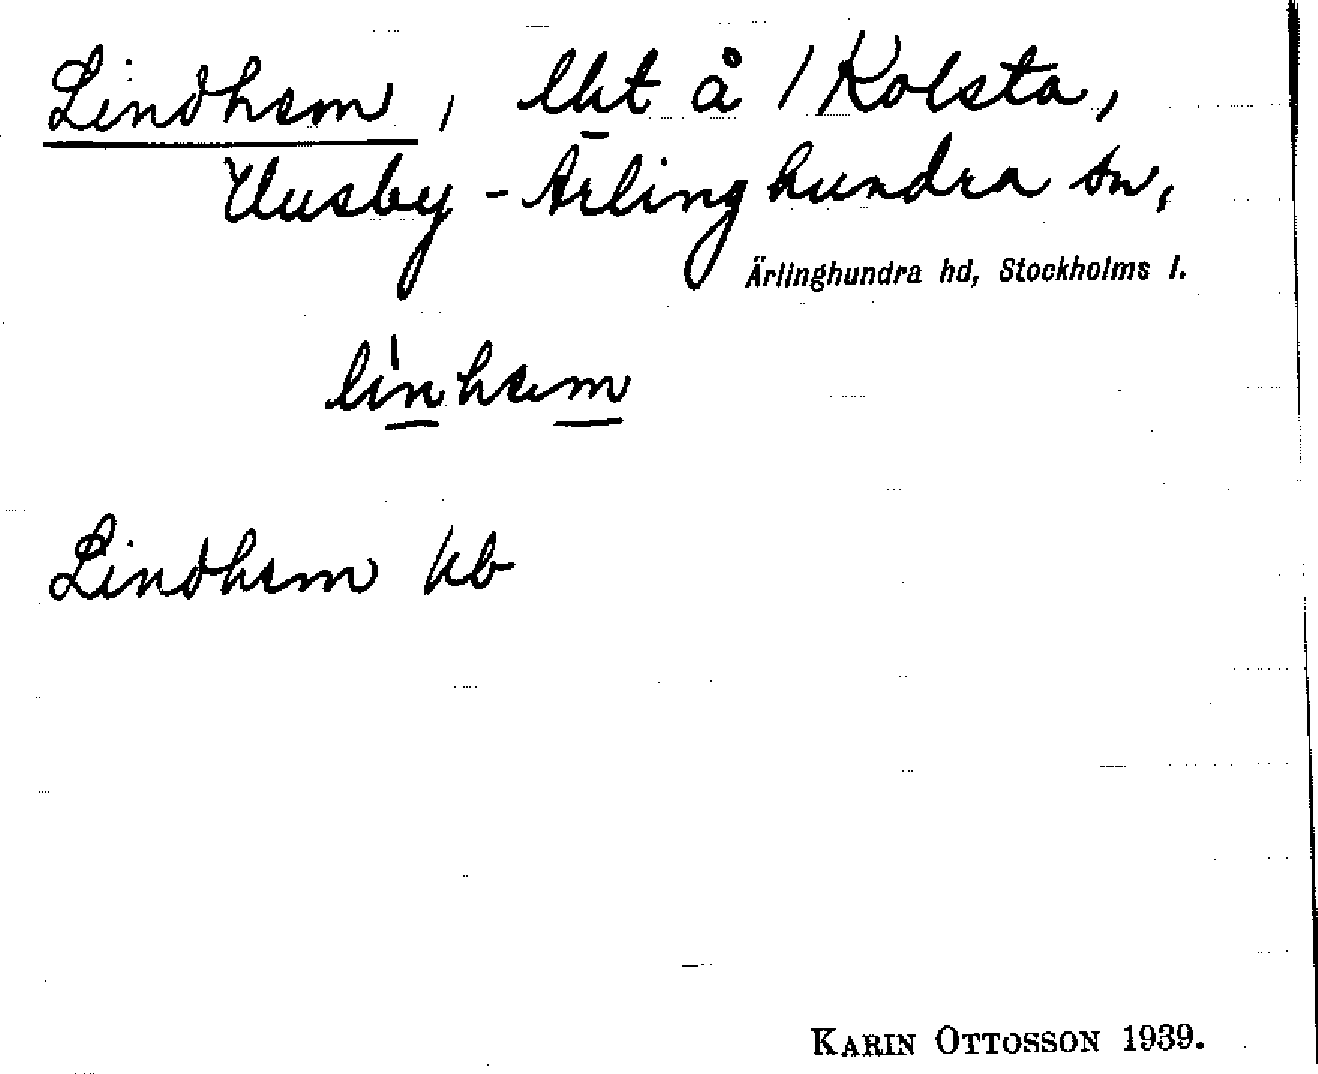 Lindhem, lht å 1 Kolsta,
Husby-Ärlinghundra sn,
Ärlinghundra hd, Stockholms l.
lìnhem
Lindhem kb
KARIN OTTOSSON 1939.